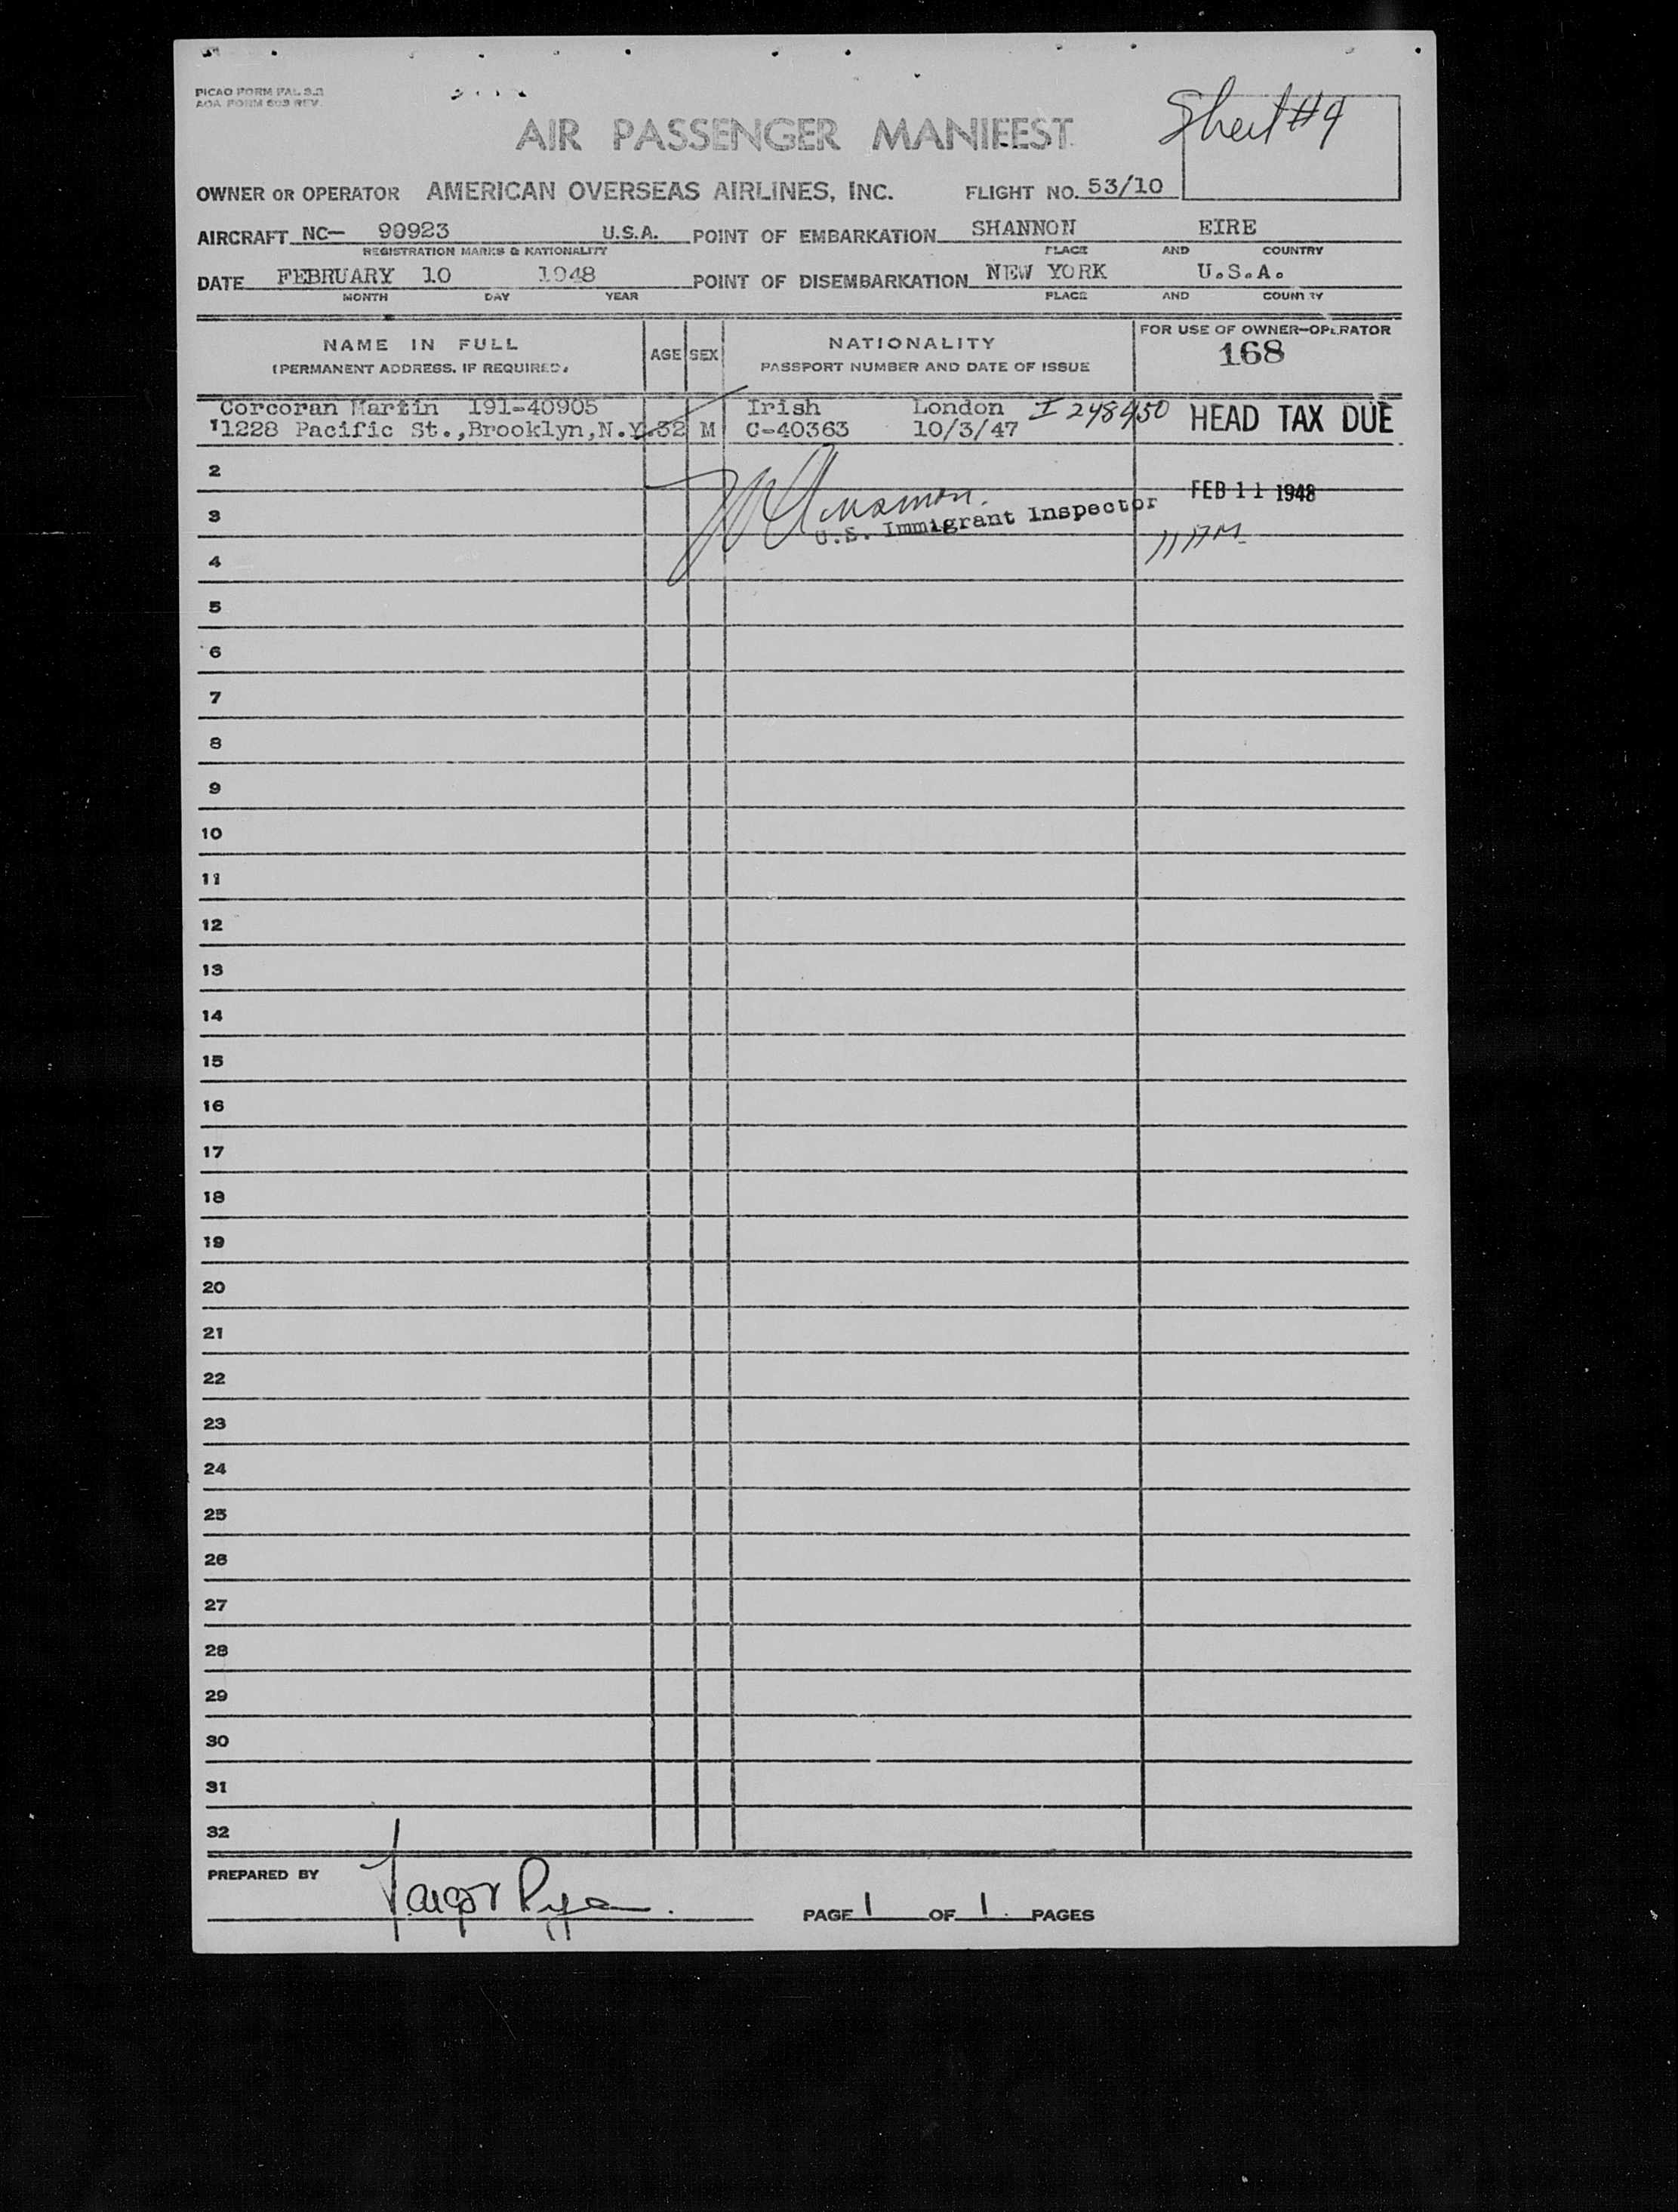 PICAO FORM FAL 2.2
AOA FORM 603 REV.
Sheet #9
AIR PASSENGER MANIFEST
OWNER OR OPERATOR AMERICAN OVERSEAS AIRLINES, INC. FLIGHT NO. 53/10
AIRCRAFT NC- 90923 U.S.A. POINT OF EMBARKATION SHANNON EIRE
REGISTRATION MARKS & NATIONALITY PLACE AND COUNTRY
DATE FEBRUARY 10 1948 POINT OF DISEMBARKATION NEW YORK U.S.A.
MONTH DAY YEAR PLACE AND COUNTRY
NAME IN FULL
(PERMANENT ADDRESS, IF REQUIRED)
AGE SEX
NATIONALITY
PASSPORT NUMBER AND DATE OF ISSUE
FOR USE OF OWNER-OPERATOR
168
Corcoran Martin 191-40905 Irish London I 248450
1 1228 Pacific St.,Brooklyn,N.Y. 32 M C-40363 10/3/47 HEAD TAX DUE
2
FEB 11 1948
3 U.S. Immigrant Inspector
4
5
6
7
8
9
10
11
12
13
14
15
16
17
18
19
20
21
22
23
24
25
26
27
28
29
30
31
32
PREPARED BY
PAGE 1 OF 1. PAGES